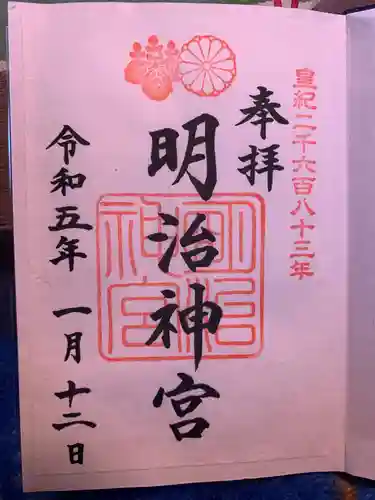 皇紀二千六百八十三年
奉拝
明治神宮
明治神宮
令和五年 一月 十二日